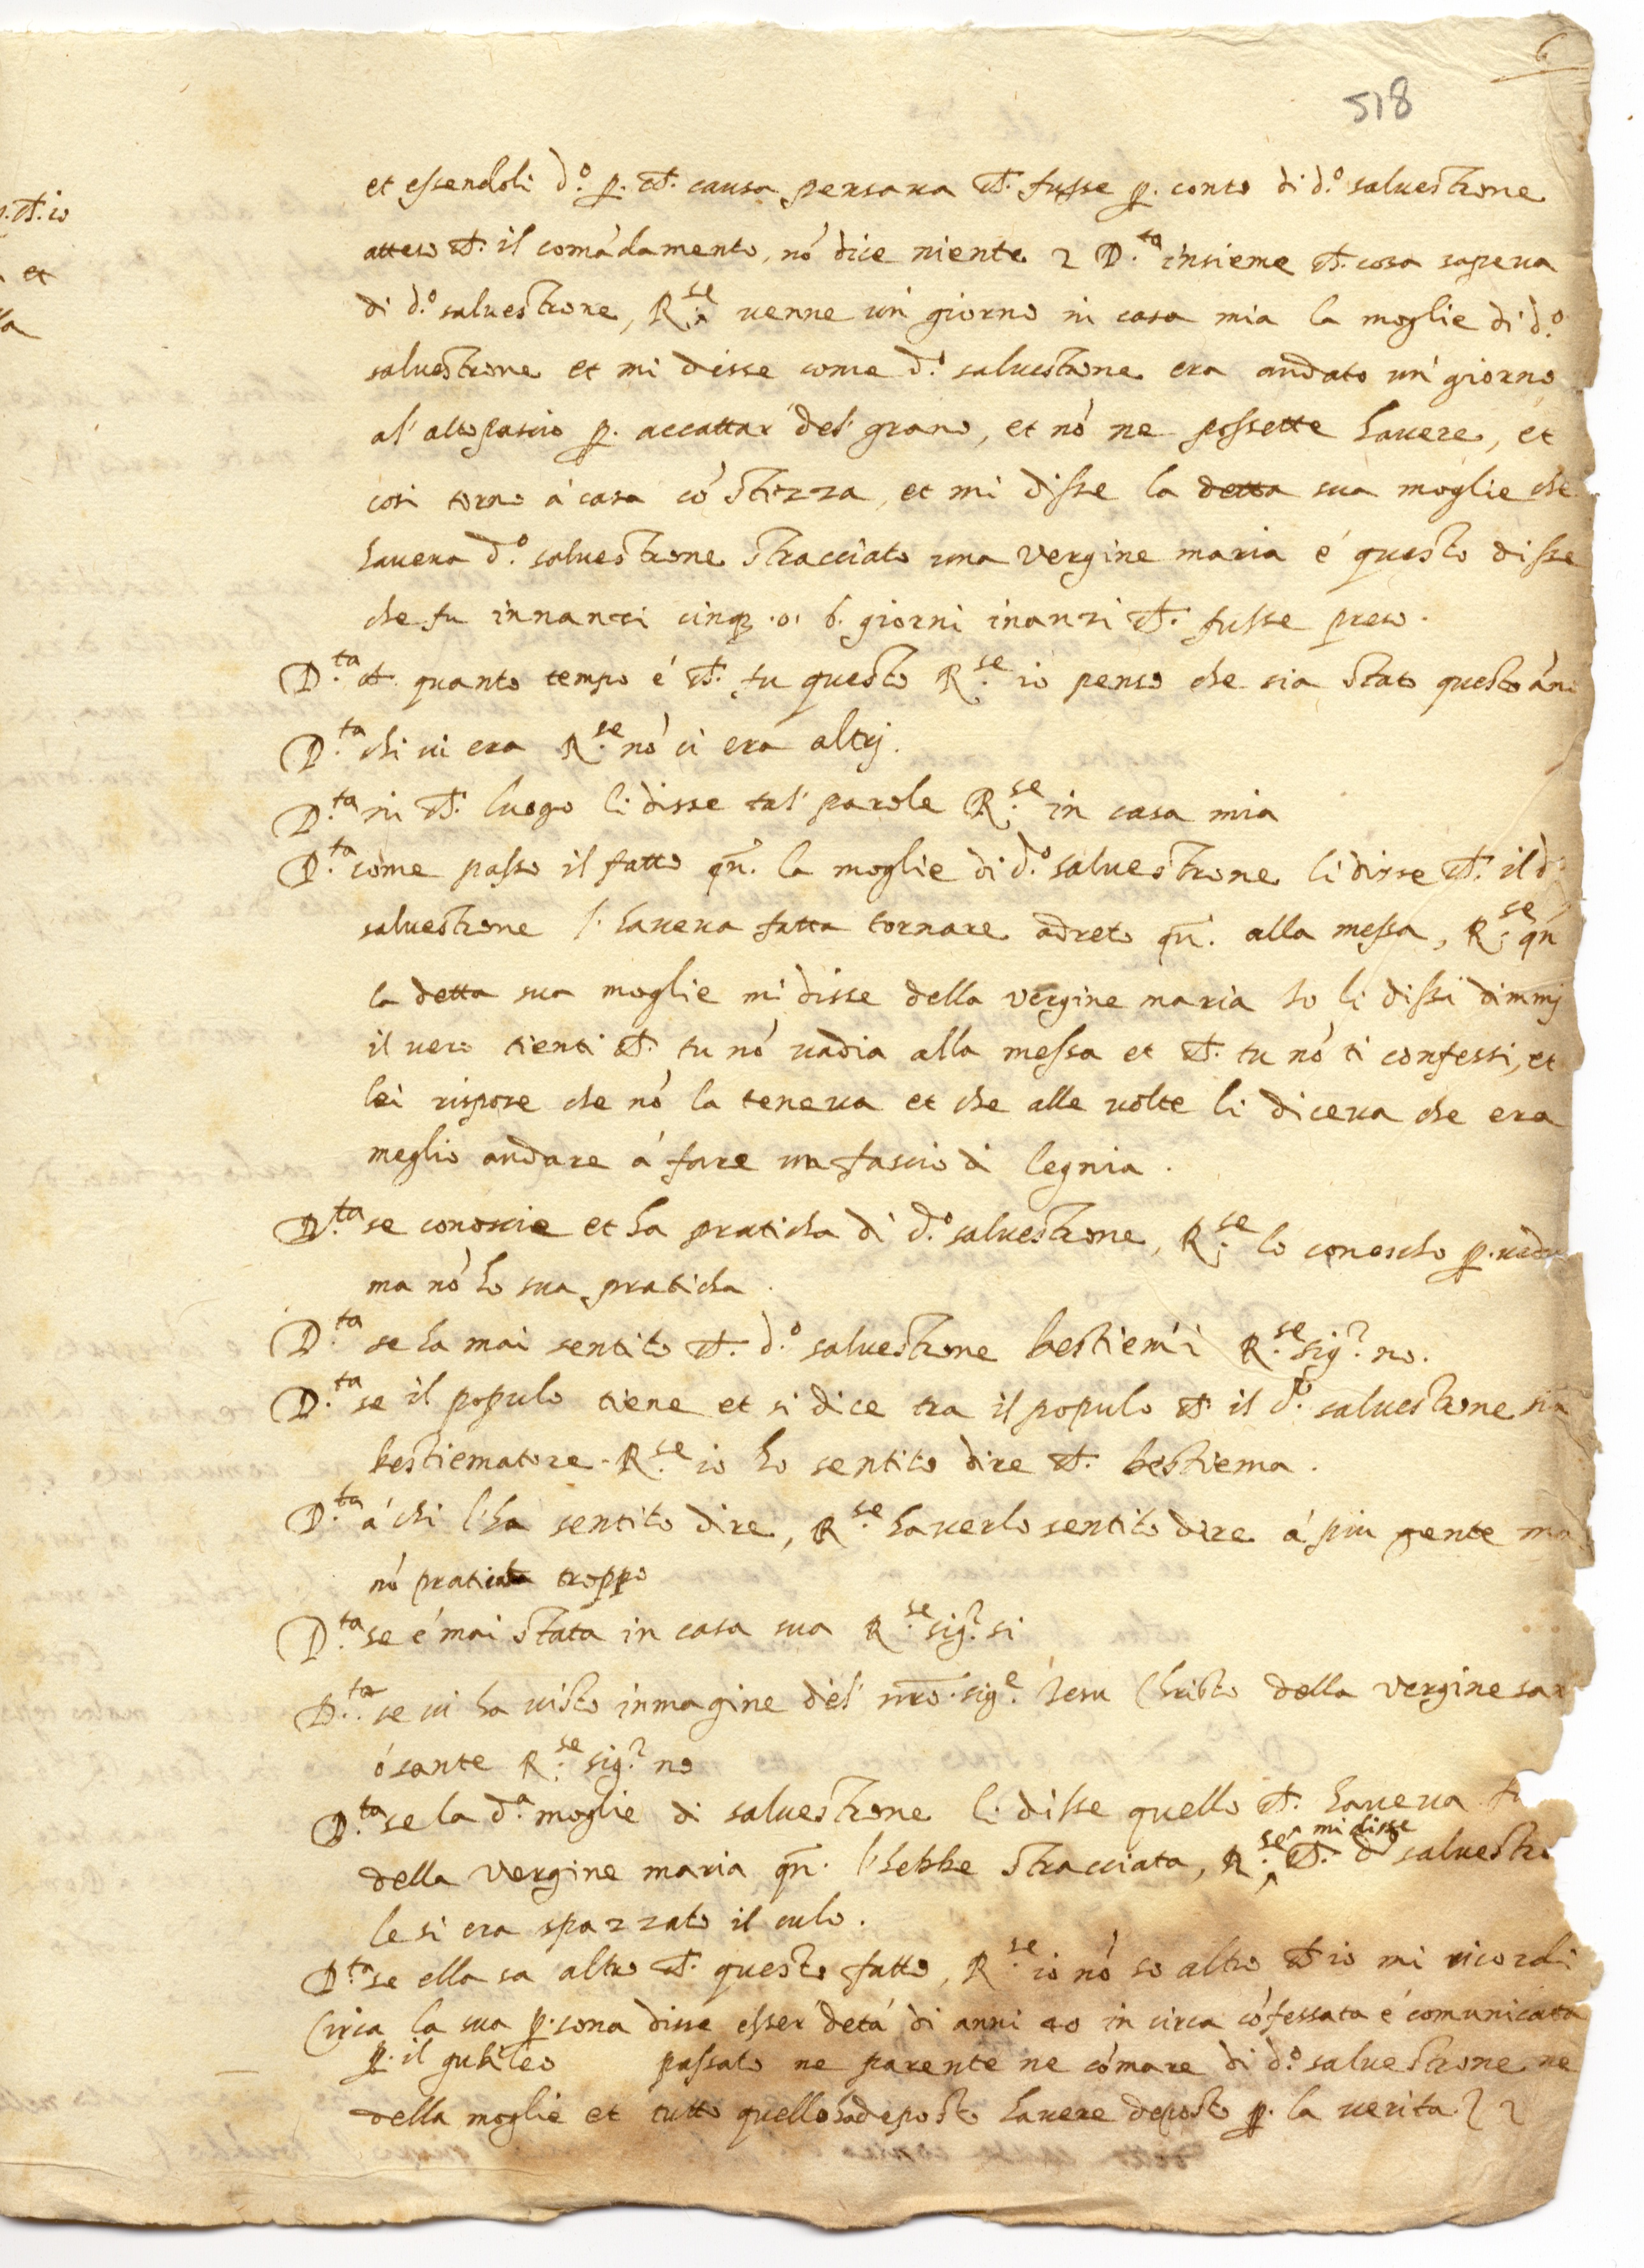 6
518
et essendoli d.º p. ch. causa pensava ch. fusse p. conto di d.º salvestrone
atteso ch. il comādamento, nō dice niente 2 D.ta insieme ch. cosa sapeva
di d.º salvestrone, R.se venne un giorno in casa mia la moglie di d.º
salvestrone et mi disse come d.º salvestrone era andato un giorno
al altopascio p. accattar del grano, et nō ne possette havere, et
cosi torno á casa cō stizza, et mi disse la detta sua moglie che
haveva d.º salvestrone stracciato una vergine maria é questo disse
che fu innanzi cinq. o. 6. giorni inanzi ch. fusse preso.
D.ta ch. quanto tempo é ch. fu questo R.se io penso che sia stato questo án
D.ta chi vi era R.se nō ci era altrj.
D.ta in ch. luogo li disse tal parole R.se in casa mia
D.ta come passo il fatto qn̄. la moglie di d.º salvestrone li disse ch. il d.
salvestrone l'haveva fatta tornare adreto qn̄. alla messa, R.se qn̄
la detta sua moglie mi disse della vergine maria Io li dissi dimmj
il vero tienti ch. tu nō vadia alla messa et ch. tu nō ti confessi, et
lei rispose che nō la teneva et che alle volte li diceva che era
meglio andare á fare un fascio di legnia.
D.ta se conoscie et ha praticha di d.º salvestrone, R.se lo conoscho p. vedu
ma nō ho sua praticha.
D.ta se ha mai sentito ch. d.º salvestrone bestiemi R.se sig.r no.
D.ta se il populo tiene et si dice tra il populo ch. il d.º salvestrone sia
bestiematore. R.se io ho sentito dire ch. bestiema.
D.ta á chi l'ha sentito dire, R.se haverlo sentito dire á piu gente ma
nō praticha troppo
D.ta se é mai stata in casa sua R.se sig.r si
D.ta se vi ha visto inmagine del nr̄o. sig.e Iesu Christo della vergine san
ó sante R.se sig.r no
D.ta se la d.a moglie di salvestrone li disse quello ch. haveva
della vergine maria qn̄. l'hebbe stracciata, R.se mi disse ch. d.º salvestro
le si era spazzato il culo.
D.ta se ella sa altro ch. questo fatto, R.se io nō so altro ch. io mi ricordi
Circa la sua p.sona disse esser detá di anni 40 in circa cōfessata é comunicata
p. il gubileo passato ne parente ne cōmare di d.º salvestrone ne
della moglie et tutto quello ha deposto havere deposto p. la verita 2